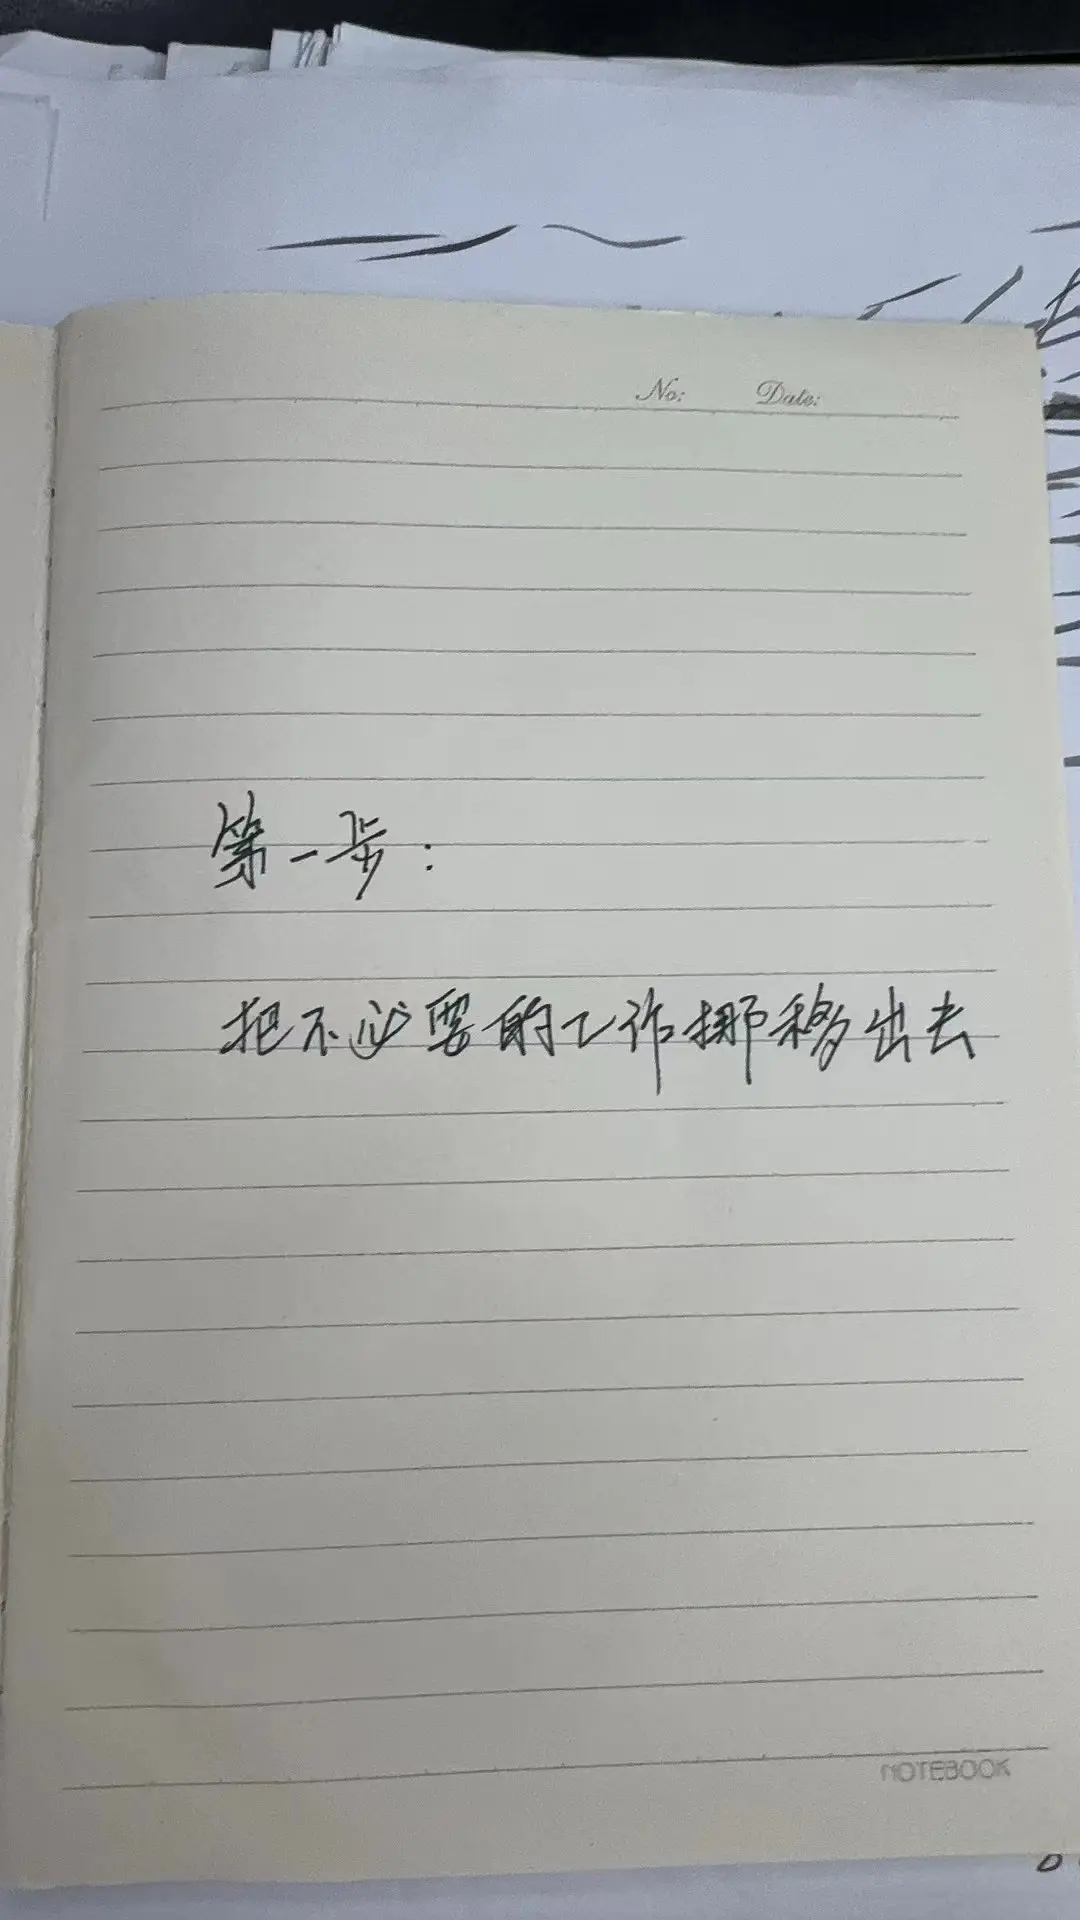 No: Date:
第一步:
把不必要的工作挪移出去
NOTEBOOK